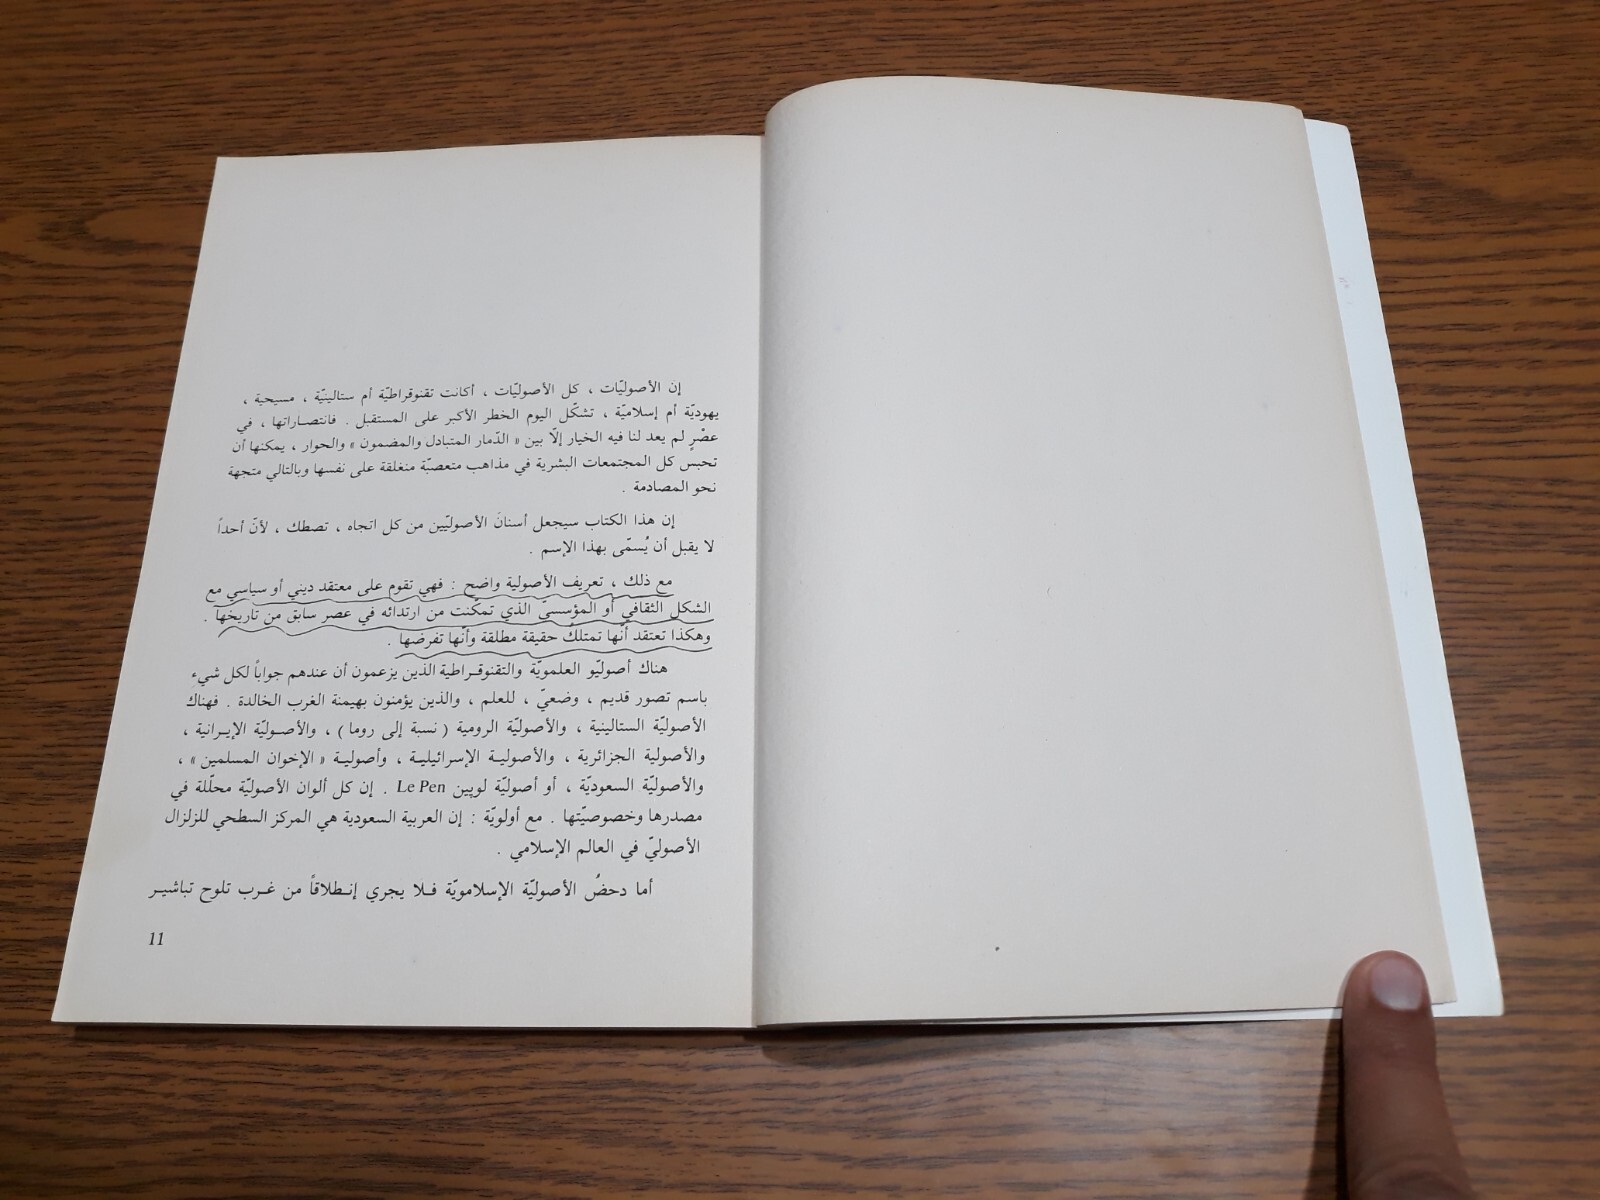 إن الأصوليّات ، كل الأصوليّات ، أكانت تقنوقراطيّة أم ستالينيّة ، مسيحية ،
يهوديّة أم إسلاميّة ، تشكّل اليوم الخطر الأكبر على المستقبل . فانتصاراتها ، في
عصْرٍ لم يعد لنا فيه الخيار إلّا بين « الدّمار المتبادل والمضمون » والحوار ، يمكنها أن
تحبس كل المجتمعات البشرية في مذاهب متعصبّة منغلقة على نفسها وبالتالي متجهة
نحو المصادمة .
إن هذا الكتاب سيجعل أسنانَ الأصوليّين من كل اتجاه ، تصطك ، لأنّ أحداً
لا يقبل أن يُسمّى بهذا الإسم .
مع ذلك ، تعريف الأصولية واضح : فهي تقوم على معتقد ديني أو سياسي مع
الشكل الثقافي أو المؤسسيّ الذي تمكّنت من ارتدائه في عصر سابق من تاريخها .
وهكذا تعتقد أنّها تمتلك حقيقة مطلقة وأنّها تفرضها .
هناك أصوليّو العلمويّة والتقنوقراطية الذين يزعمون أن عندهم جواباً لكل شيءٍ
باسم تصور قديم ، وضعيّ ، للعلم ، والذين يؤمنون بهيمنة الغرب الخالدة . فهناك
الأصوليّة الستالينية ، والأصوليّة الرومية ( نسبة إلى روما ) ، والأصوليّة الإيرانية ،
والأصولية الجزائرية ، والأصولية الإسرائيلية ، وأصولية « الإخوان المسلمين » ،
والأصوليّة السعوديّة ، أو أصوليّة لوپين Le Pen . إن كل ألوان الأصوليّة محلّلة في
مصدرها وخصوصيّتها . مع أولويّة : إن العربية السعودية هي المركز السطحي للزلزال
الأصوليّ في العالم الإسلامي .
أما دحضُ الأصوليّة الإسلامويّة فلا يجري إنطلاقاً من غرب تلوح تباشير
11